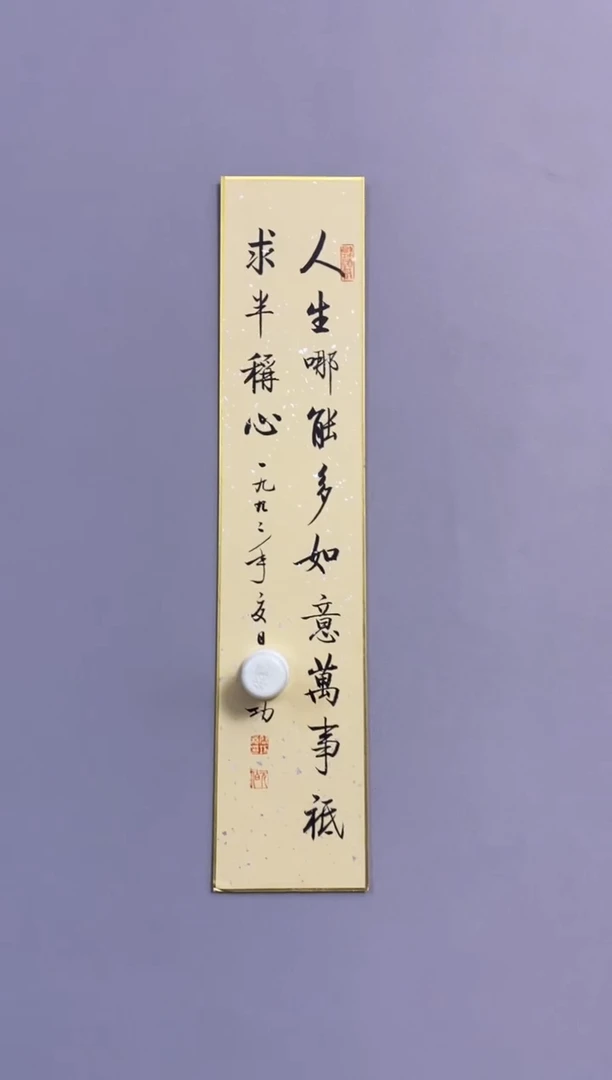 人生哪能多如意萬事祗
求半稱心 一九九二年夏日 功